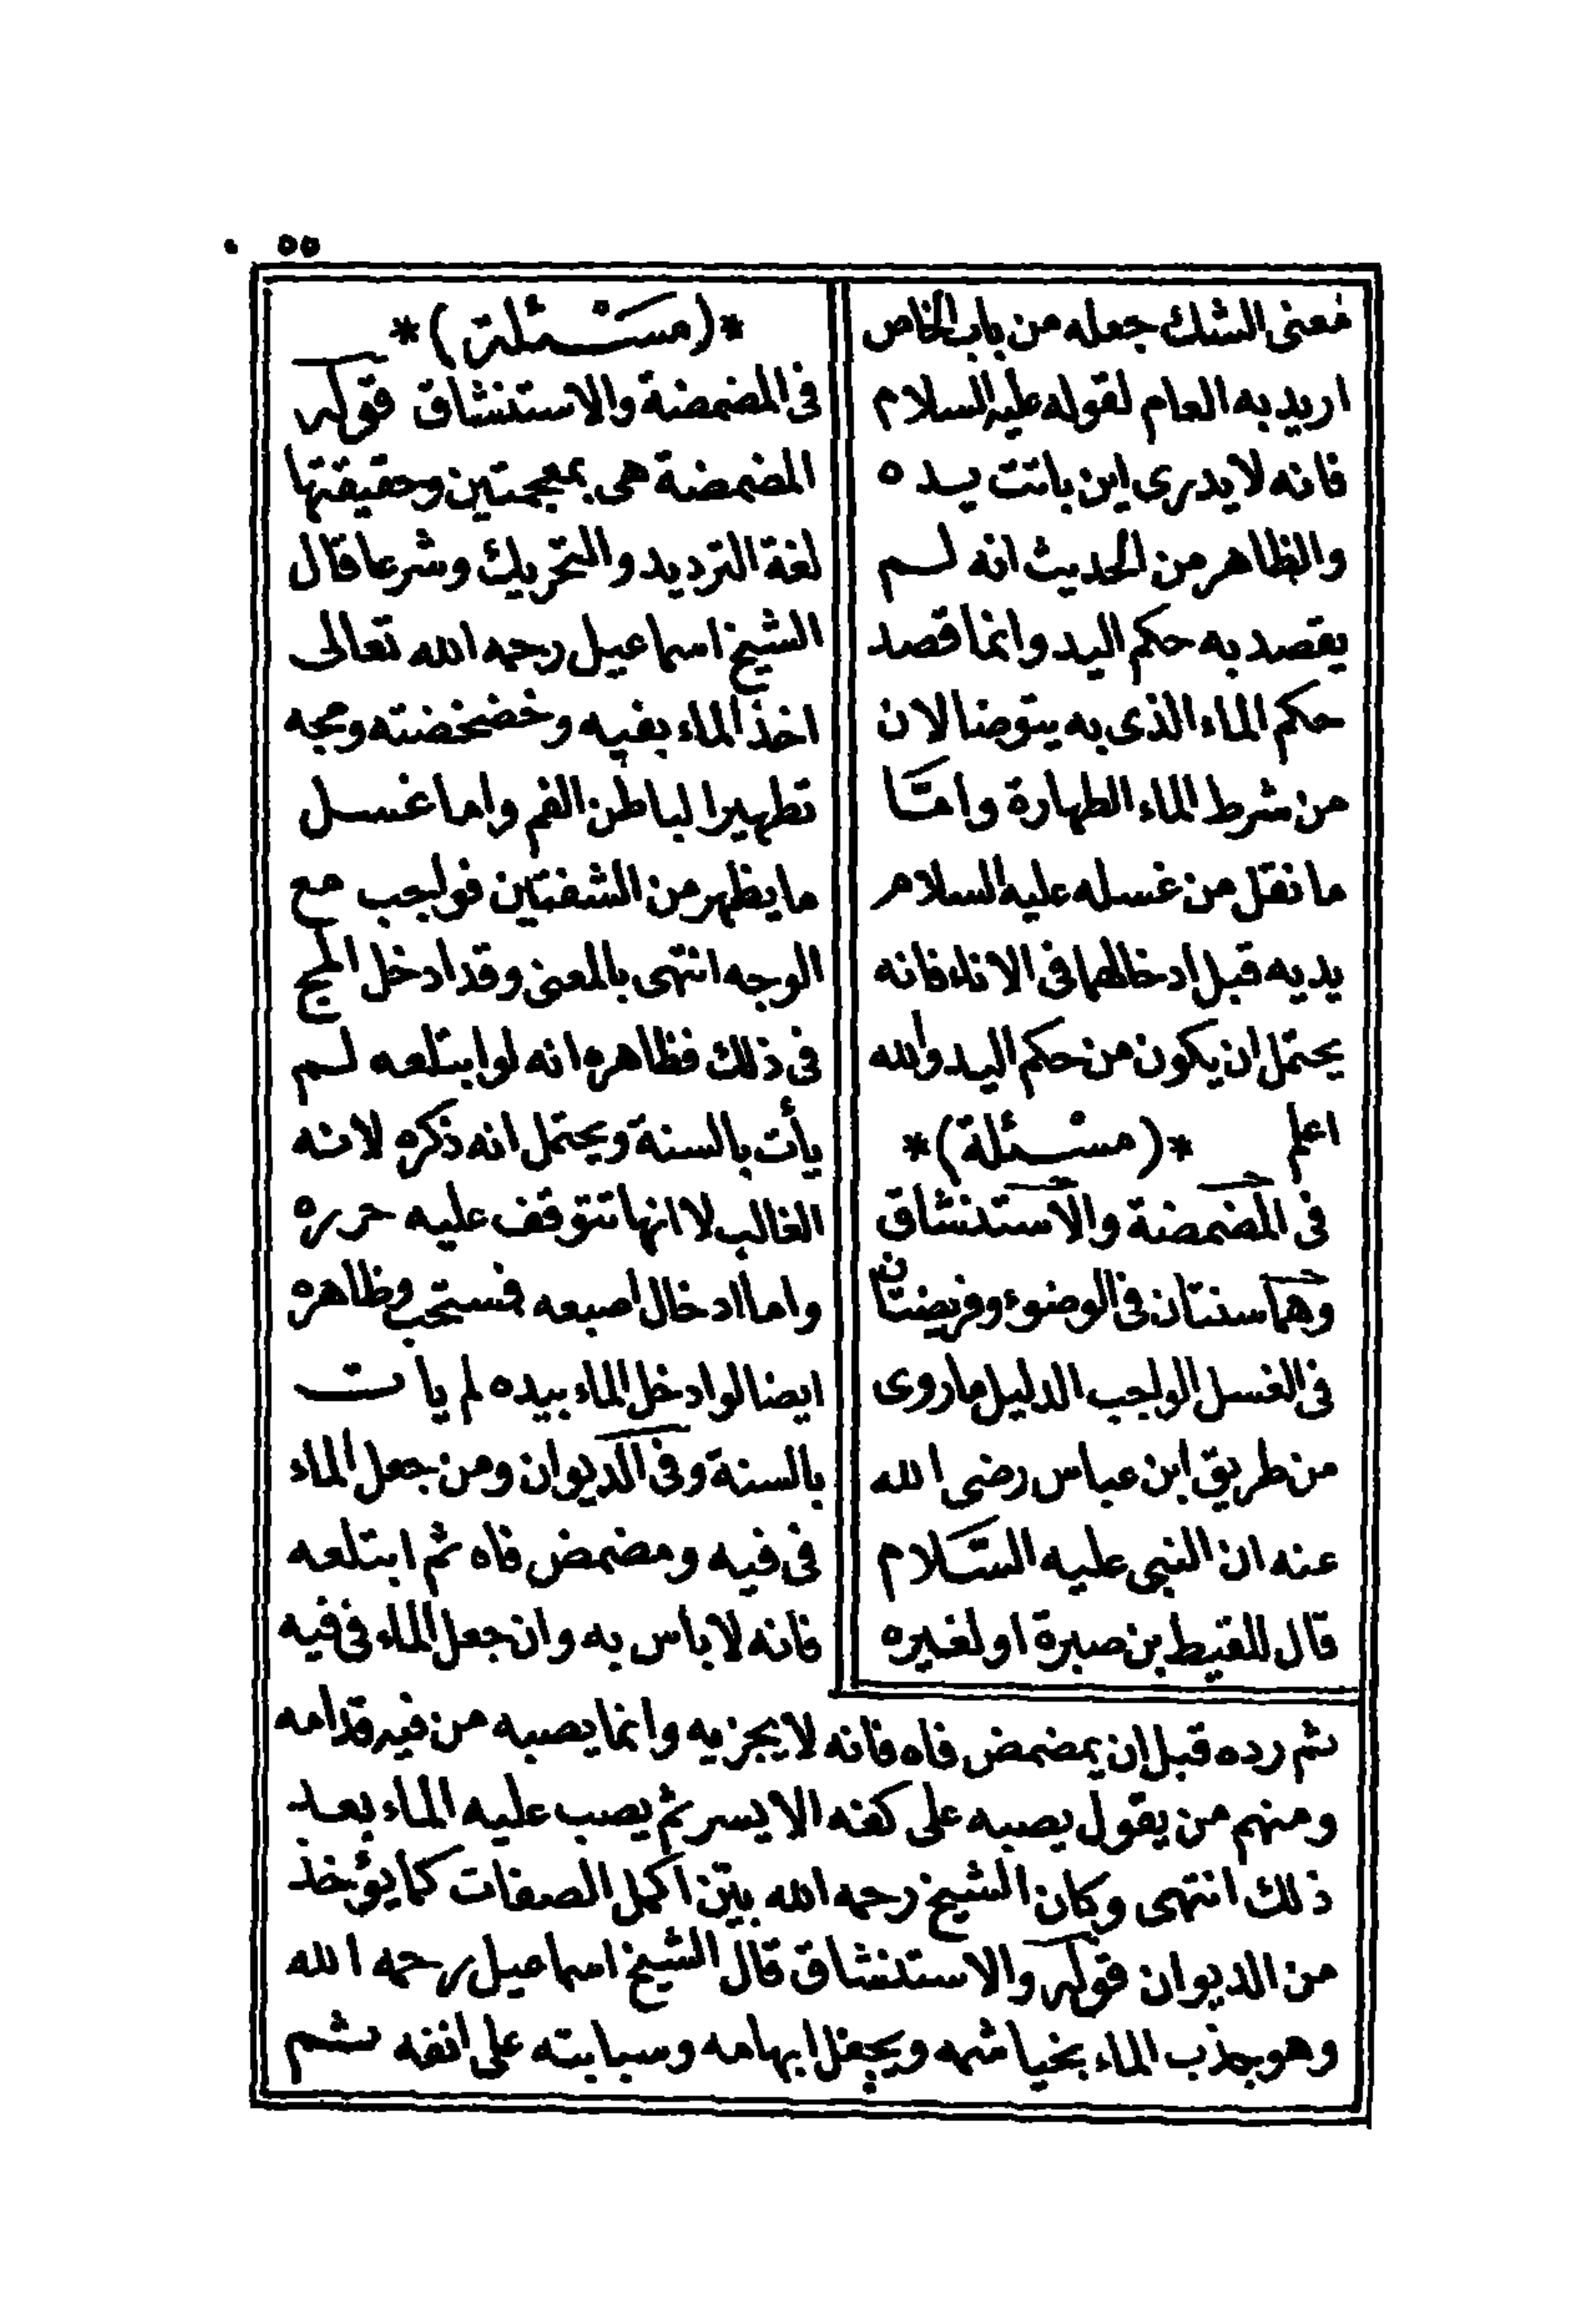 ٥٥
فمعنى الشك جعله من باب الخاص
اريد به العام لقوله عليه السلام
فانه لا يدرى اين باتت يده
والظاهر من الحديث انه لم
يقصد به حكم اليد وانما قصد
حكم الماء الذى به يتوضا لان
من شرط الماء الطهارة وامّا
ما نقل من غسله عليه السلام
يديه قبل ادخالهما فى الاناء فانه
يحتمل ان يكون من حكم اليد والله
اعلم *(مسئلة)*
فى المضمضة والاستنشاق
وهما سنتان فى الوضوء وفريضتان
فى الغسل الواجب الدليل ما روى
من طريق ابن عباس رضى الله
عنه ان النبى عليه السّلام
قال للقيط بن صبرة او لغيره
*(مسئلة)*
فى المضمضة والاستنشاق قوله
المضمضة هى بمعجمتين وحقيقتها
لغة الترديد والتحريك وشرعا قال
الشيخ اسماعيل رحمه الله تعالى
اخذ الماء بفيه وخضخضته ومجه
تطهيرا لباطن الفم واما غسل
ما يظهر من الشفتين فواجب مع
الوجه انتهى بالمعنى وقد ادخل المج
فى ذلك فظاهره انه لو ابتلعه لم
يأت بالسنة ويحتمل انه ذكره لانه
الغالب لا انها تتوقف عليه حرره
واما ادخال اصبعه فمستحب وظاهره
ايضا لو ادخل الماء بيده لم يات
بالسنة وفى الديوان ومن جعل الماء
فى فيه ومضمض فاه ثم ابتلعه
فانه لا باس به وان جعل الماء فى فيه
ثم رده قبل ان يمضمض فاه فانه لا يجزيه وانما يصبه من فيه قدامه
ومنهم من يقول يصبه على كفه الايسر ثم يصب عليه الماء بعد
ذلك انتهى وكان الشيخ رحمه الله بيّن اكمل الصفات كما يؤخذ
من الديوان قوله والاستنشاق قال الشيخ اسماعيل رحمه الله
وهو جذب الماء بخياشمه ويجعل ابهامه وسبابته على انفه ثم